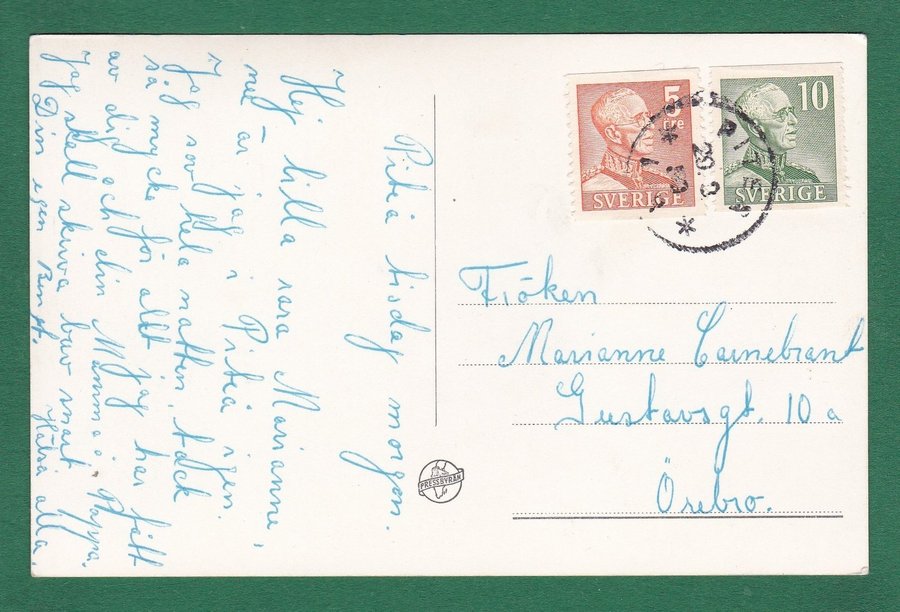 Piteå tisdag morgon.
Hej lilla rara Marianne,
nu är jag i Piteå igen.
Jag sov hela natten, tack
så mycke för allt jag har fått
av dig och din Mamma o. Pappa.
Jag skall skriva brev snart Hälsa alla,
Din egen Bengt.
5
öre
SVERIGE
10
SVERIGE
PITEÅ
Fröken
Marianne Carnebrant
Gustavsgt. 10 a
Örebro.
PRESSBYRÅN